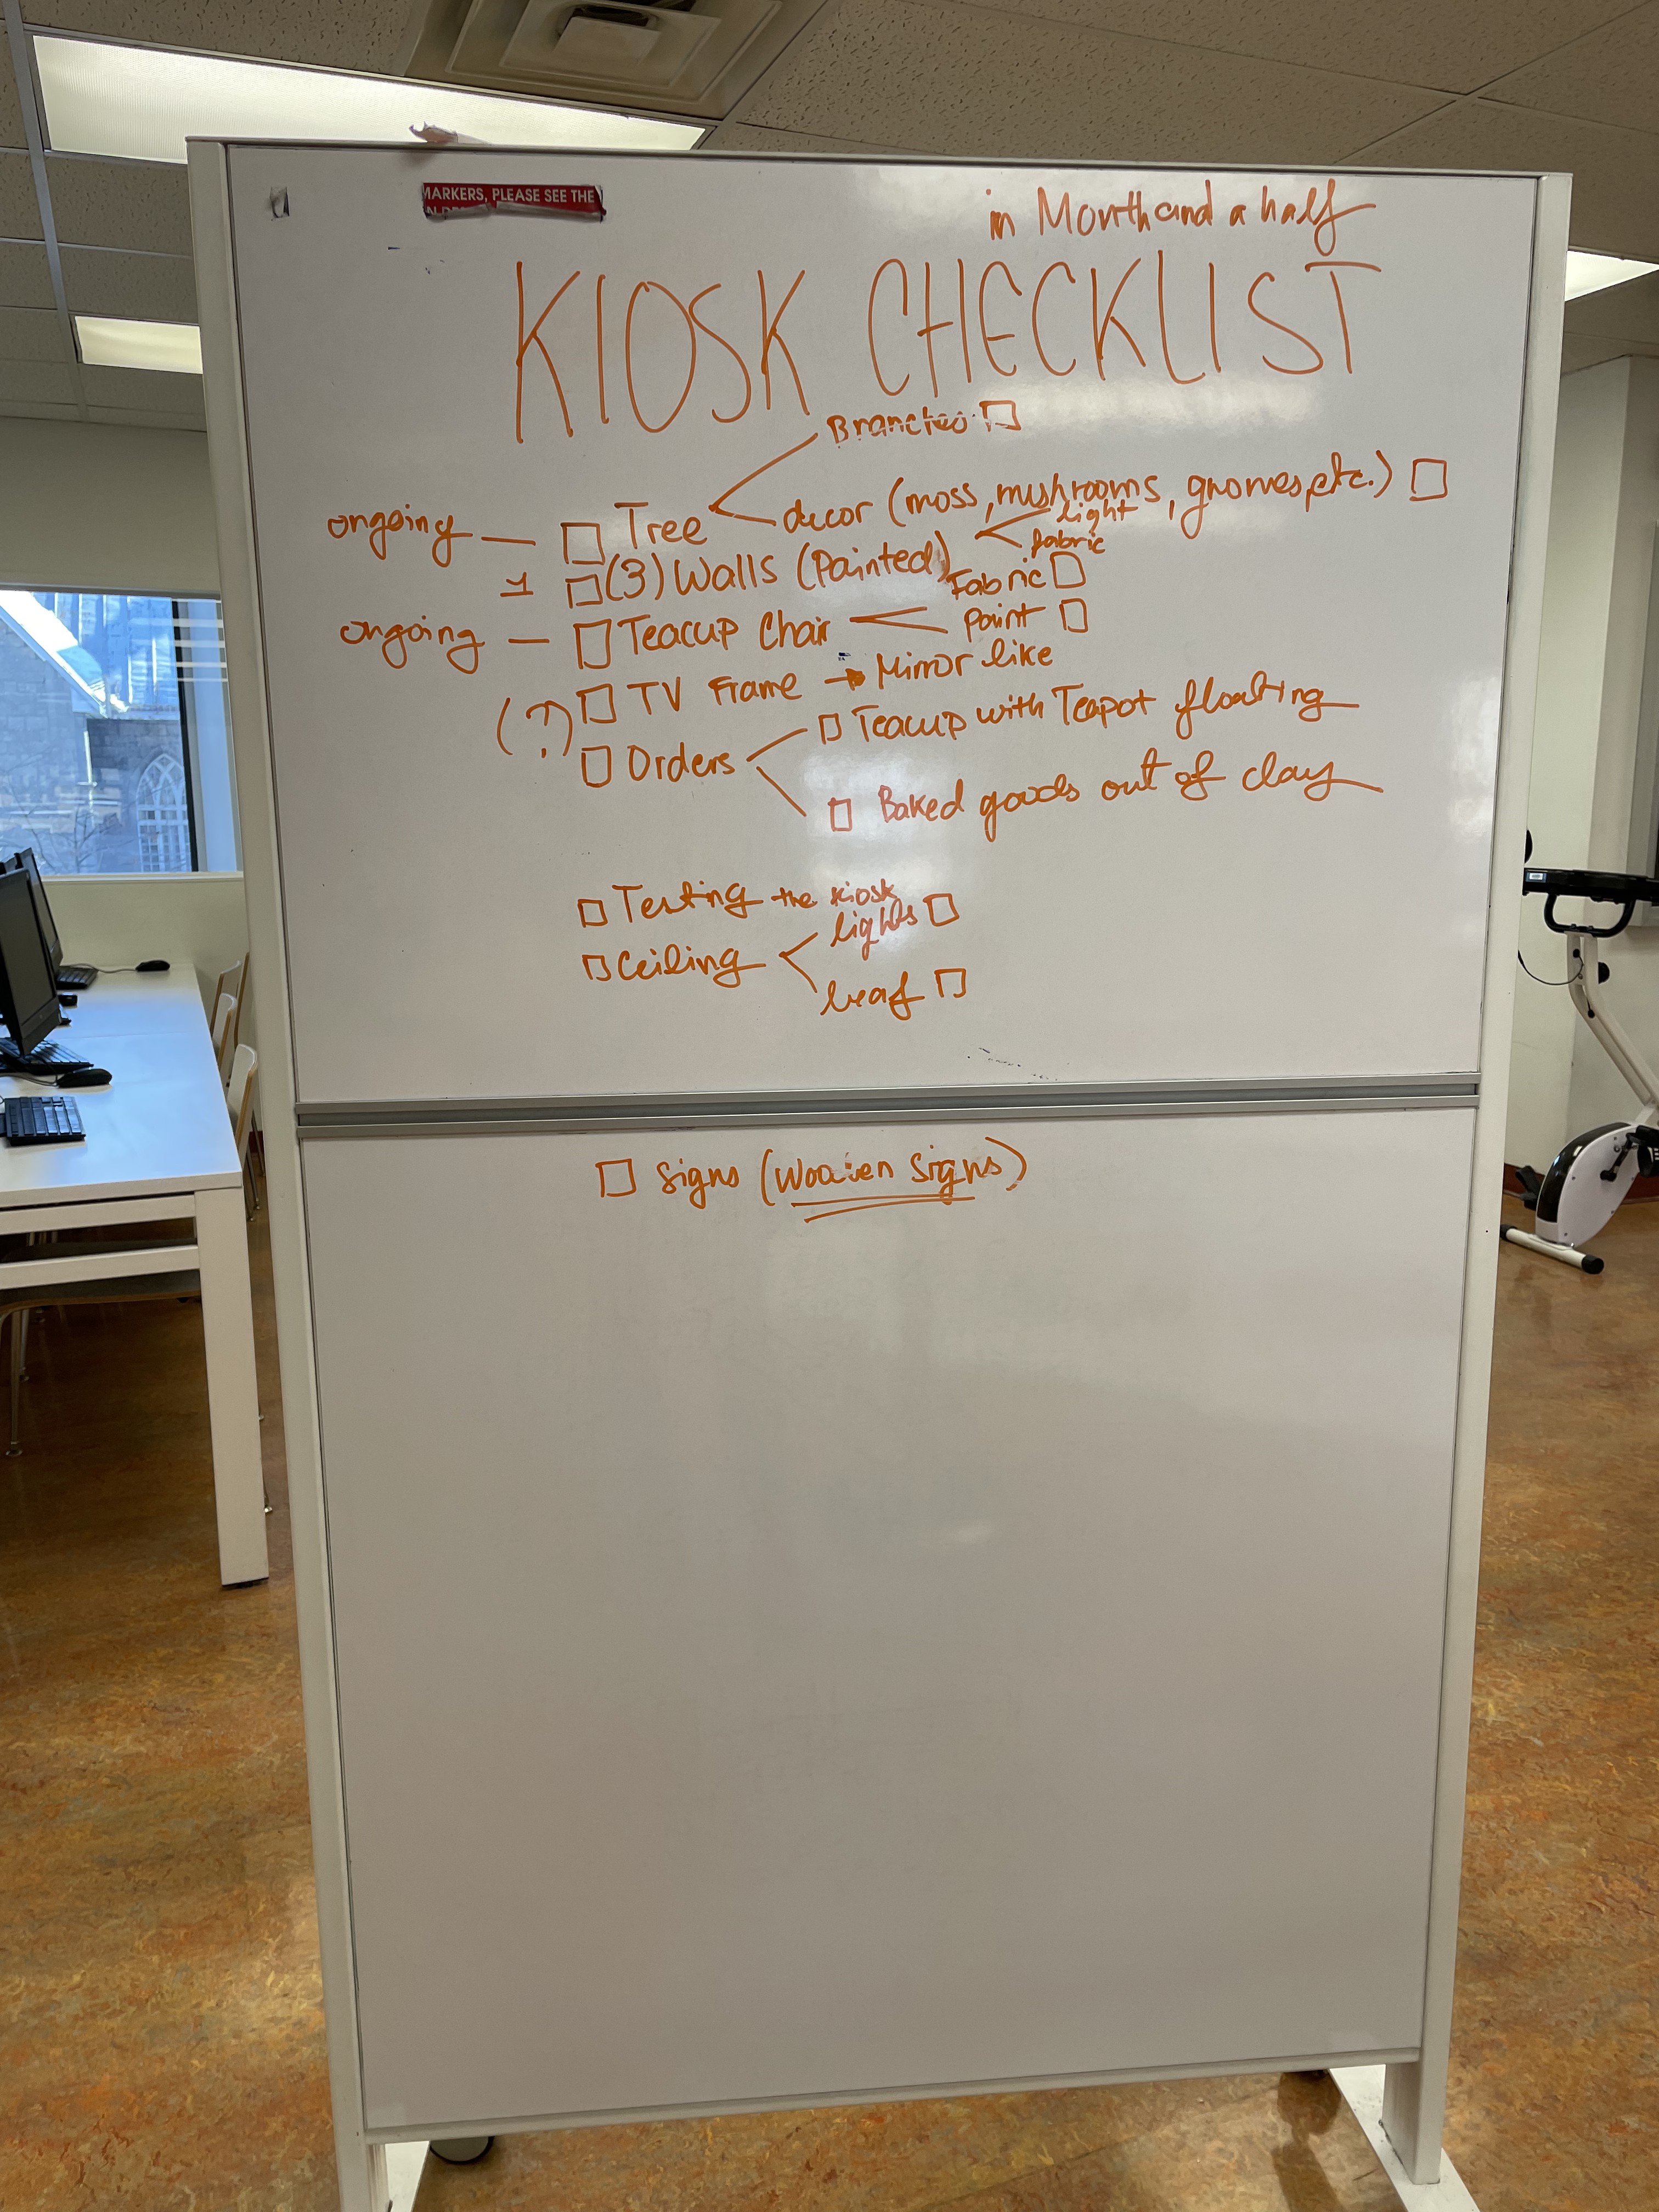 MARKERS, PLEASE SEE THE
in Month and a half
KIOSK CHECKLIST
Branches □
ongoing — □ Tree < decor (moss, mushrooms, gnomes, etc.) □
light
1 □ (3) Walls (Painted) < fabric
Fabric □
ongoing — □ Teacup Chair < Paint □
(?) □ TV Frame → Mirror like
□ Orders < □ Teacup with Teapot floating
□ Baked goods out of clay
□ Testing the kiosk
□ Ceiling < lights □
leaf □
□ Signs (Wooden Signs)